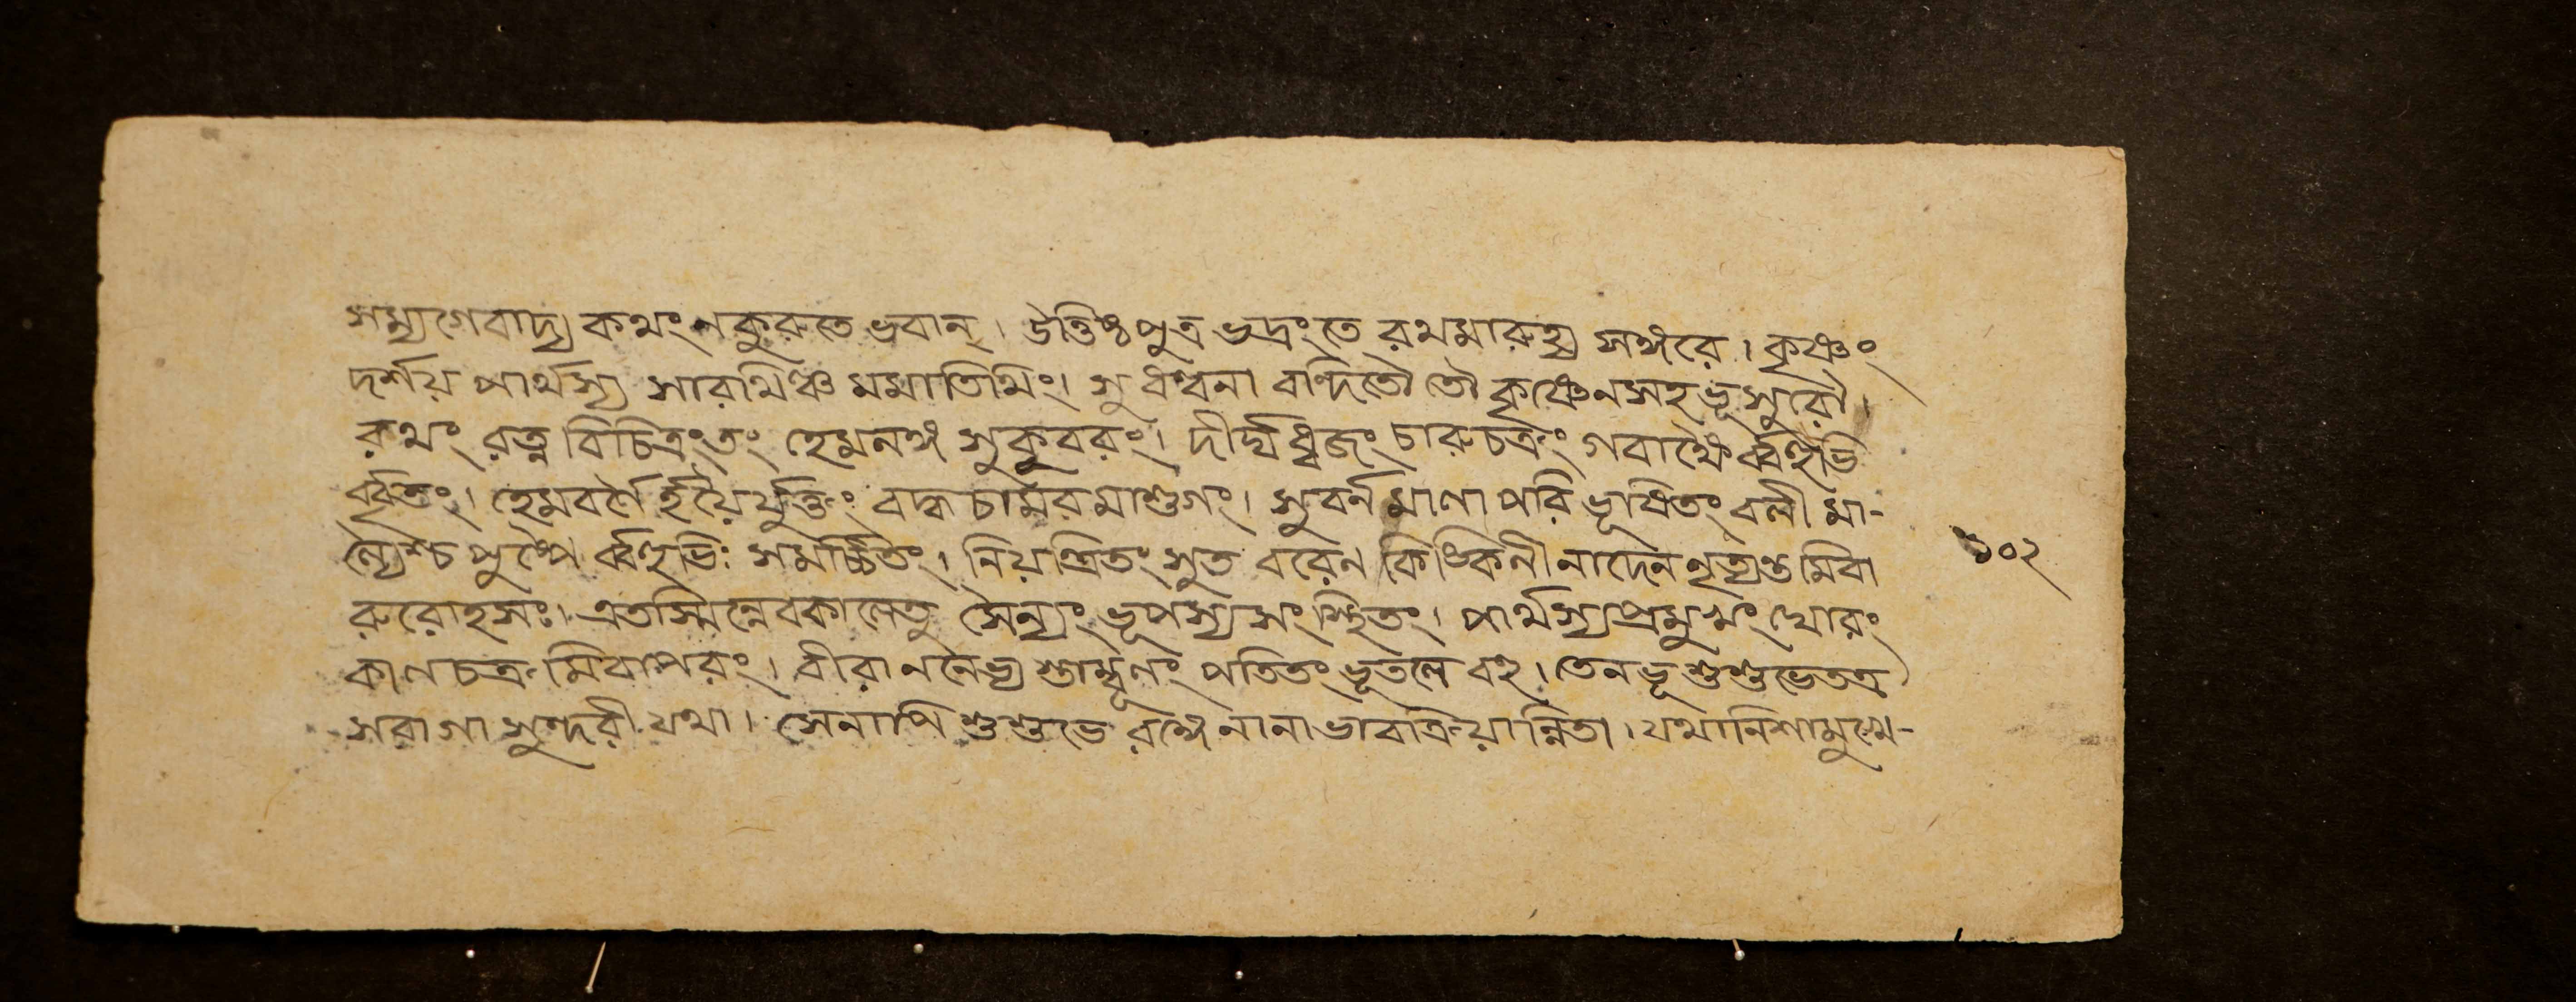 সম্যগেবাদ্য কথং নকুরুতে ভবান্। উত্তিষ্ঠ পুত্র ভদ্রং তে রথমারুহ্য সঙ্গরে। কৃষ্ণং
দর্শয় পার্থস্য সারথিঞ্চ মমাতিথিং। সুধন্বনা বান্দিতৌ তৌ কৃষ্ণেনসহ ভূসুরৌ।
রথং রত্ন বিচিত্রং তং হেমনঙ্গ সুকুবরং। দীর্ঘধ্বজং চারুচক্রং গবাক্ষৈর্ব্বহুভি
র্ব্বৃতং। হেমবর্ণৈর্হয়ৈর্যুক্তং বদ্ধ চামরমাশুগং। সুবর্ন মালা পরিভূষিতং বলী মা-
ল্যৈশ্চ পুষ্পৈর্ব্বহুভিঃ সমর্চ্চিতং। নিয়ন্ত্রিতং সুত বরেন কিঙ্কিনী নাদেন নৃত্যন্তমিবা
রুরোহসঃ। এতস্মিন্নেবকালেতু সৈন্যং ভূপস্য সংস্থিতং। পার্থস্যপ্রমুখং ঘোরং
কালচক্রমিবাপরং। বীরাননৈভ্য স্তাম্বূলং পতিতং ভূতলে বহু। তেনভূ শুশুভেতত্র
সরাগা সুন্দরী যথা। সেনাপি শুশুভে রঙ্গে নানা ভাবাক্রিয়ান্বিতা। যথানিশামুখে-
১০২